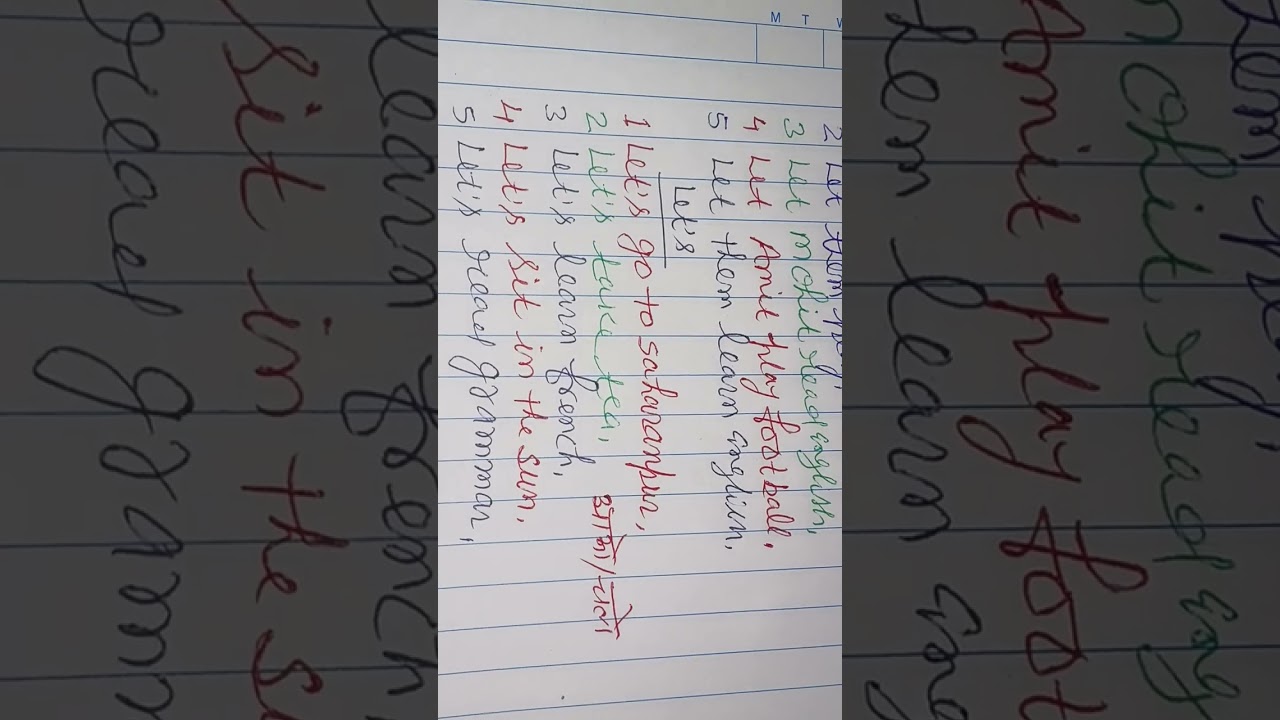 M T W
2 Let them
3 Let mohit read english,
4 Let Amit play football,
5 Let them learn english,
Let's
1 Let's go to saharanpur,
2 Let's take tea, आओ/चलो
3 Let's learn french,
4 Let's sit in the sun,
5 Let's read grammar,